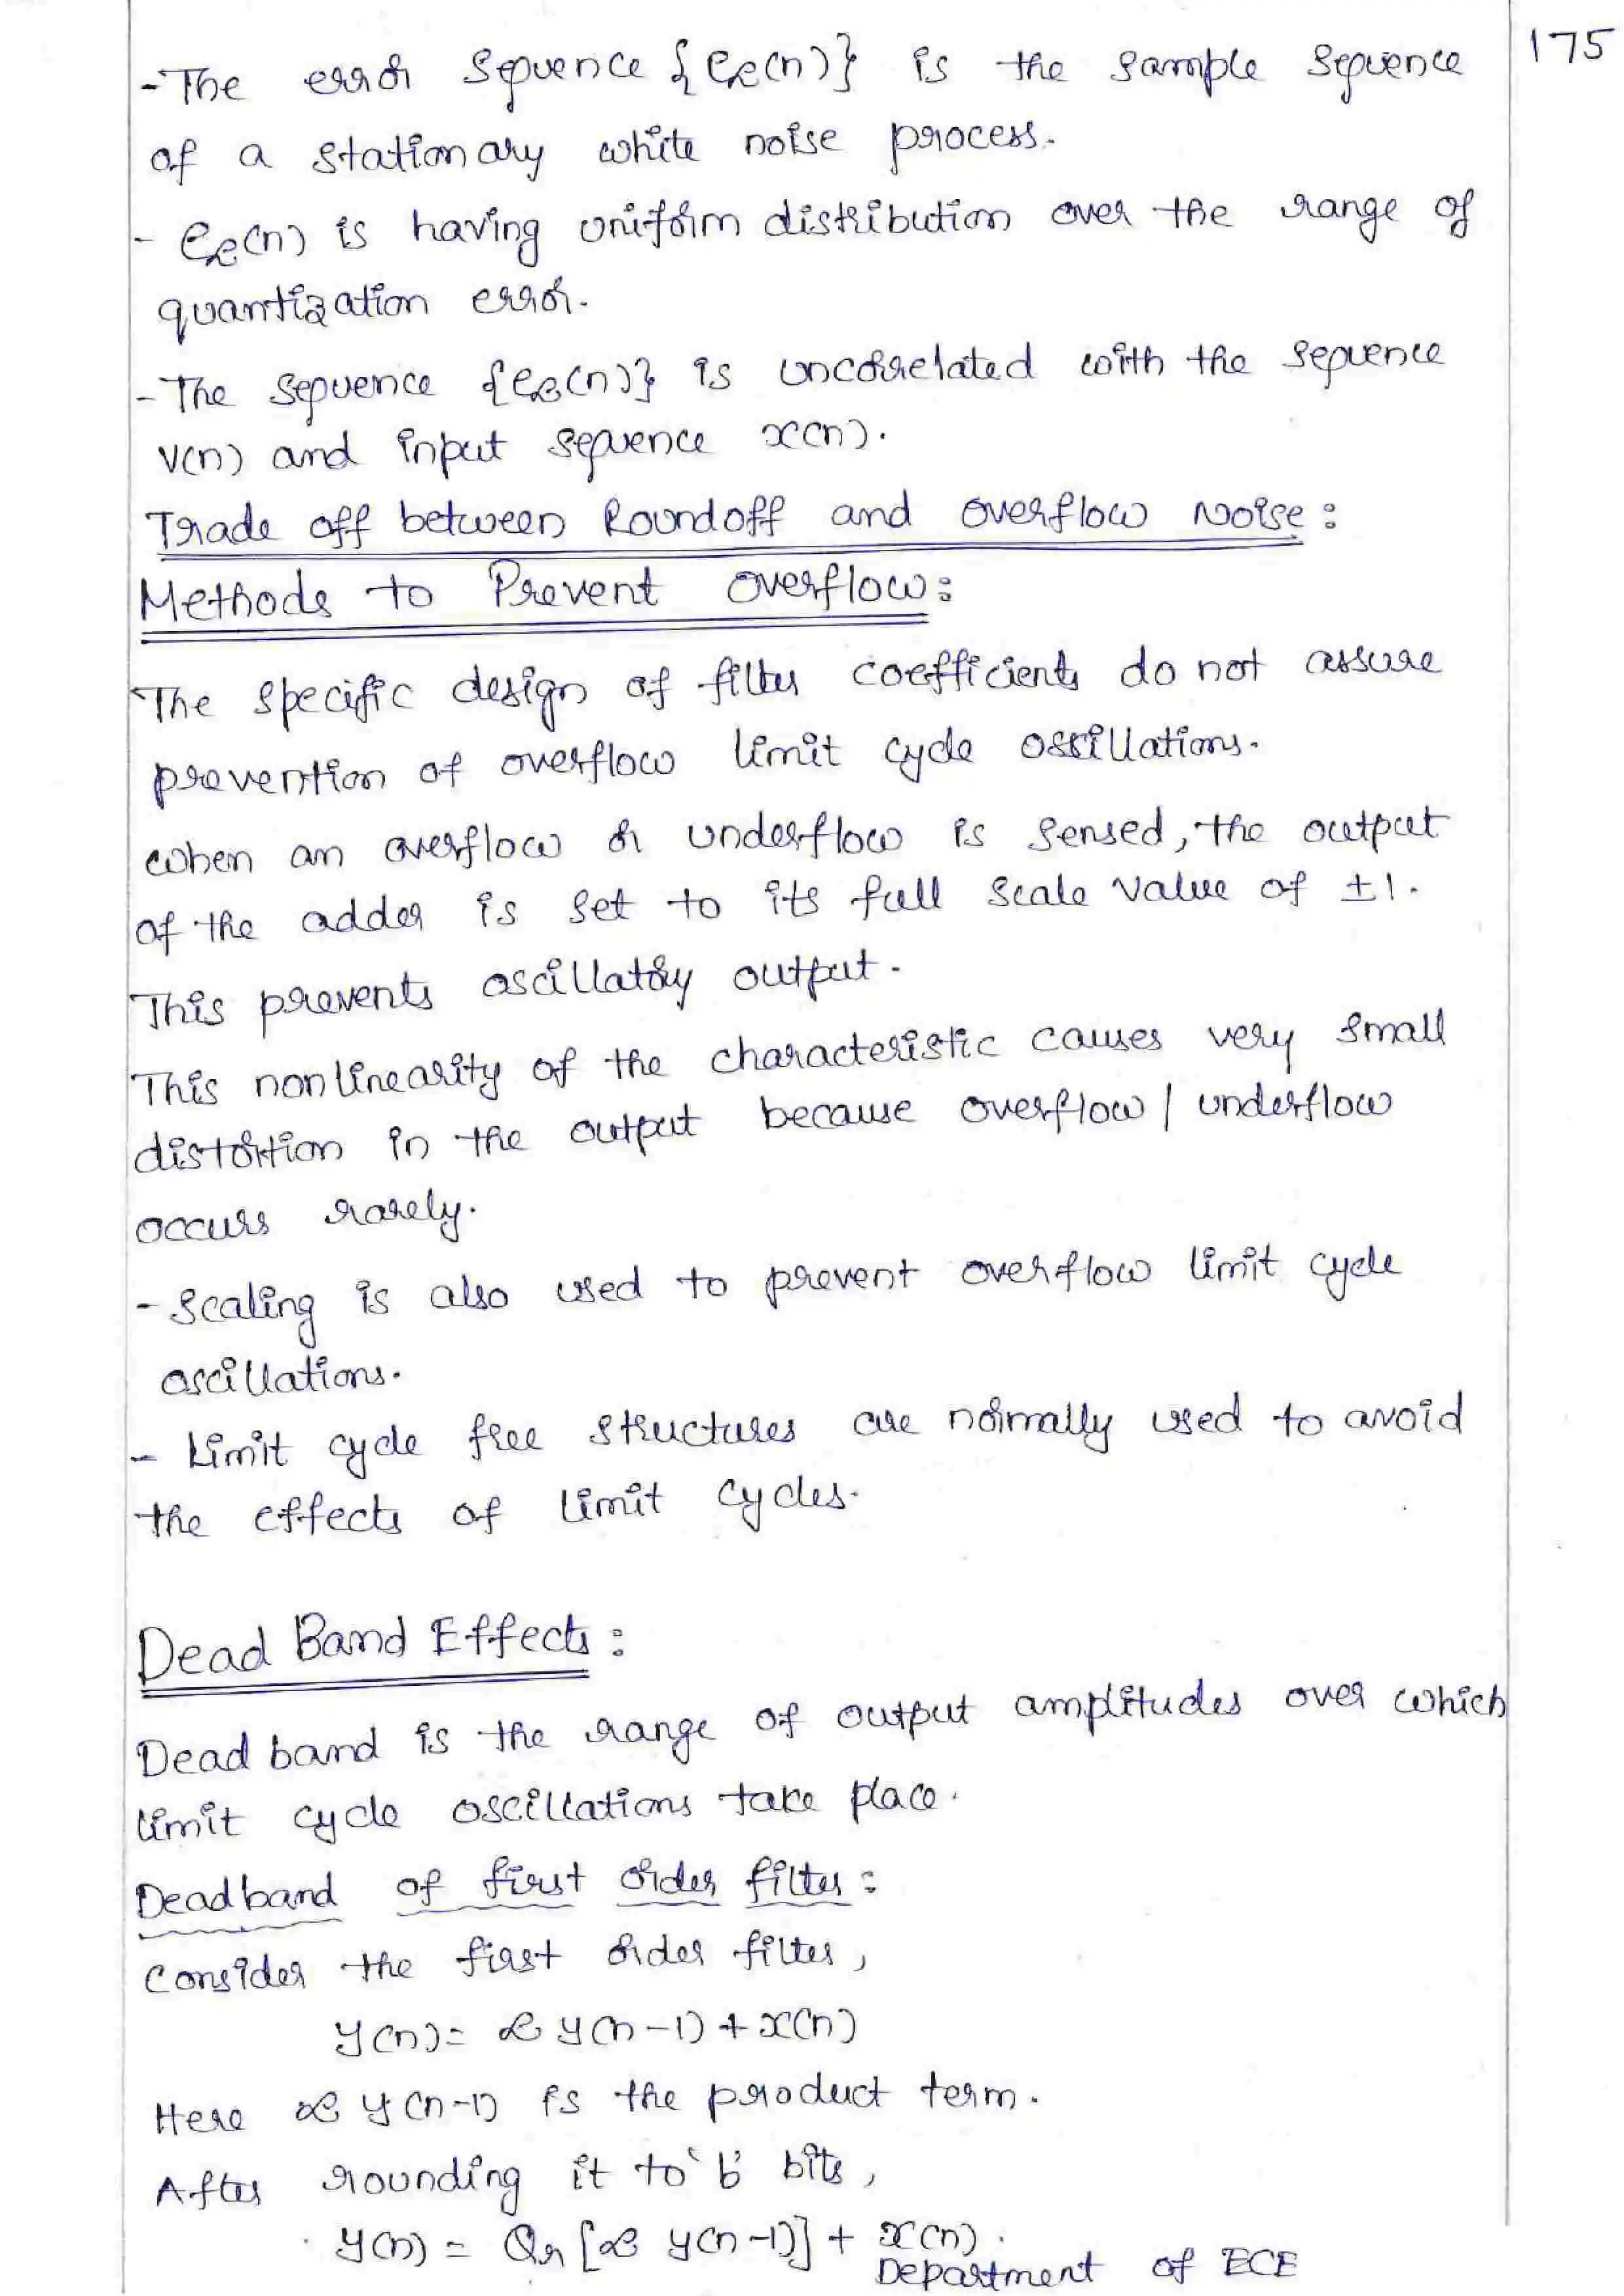 175
-The error sequence {eα(n)} is the sample sequence
of a stationary white noise process.
- eα(n) is having uniform distribution over the range of
quantization error.
-The sequence {eα(n)} is uncorrelated with the sequence
v(n) and input sequence x(n).
Trade off between Roundoff and overflow Noise:
Methods to Prevent overflow:
The specific design of filter coefficients do not assure
prevention of overflow limit cycle ossillations.
when an overflow or underflow is sensed, the output
of the adder is set to its full scale value of ±1.
This prevents oscillatory output.
This nonlinearity of the characteristic causes very small
distortion in the output because overflow | underflow
occurs rarely.
- Scaling is also used to prevent overflow limit cycle
oscillations.
- Limit cycle free structures are normally used to avoid
the effects of limit cycles.
Dead Band Effects:
Dead band is the range of output amplitudes over which
limit cycle oscillations take place.
Deadband of first order filter:
Consider the first order filter,
y(n) = α y(n-1) + x(n)
Here α y(n-1) is the product term.
After rounding it to 'b' bits,
y(n) = Qr [α y(n-1)] + x(n).
Department of ECE